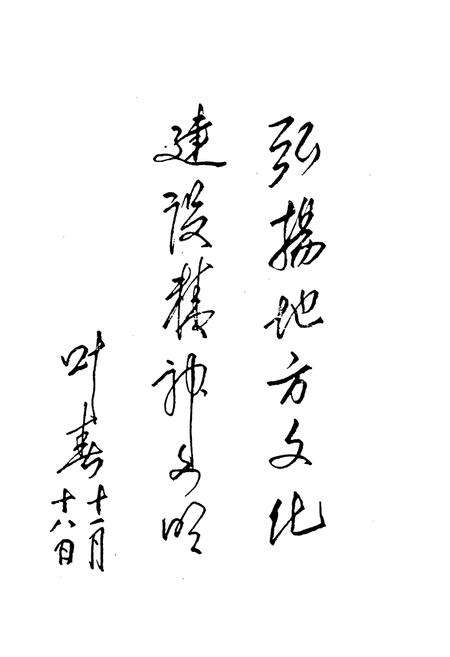 弘揚地方文化
建设精神文明
叶春
十一月
十八日